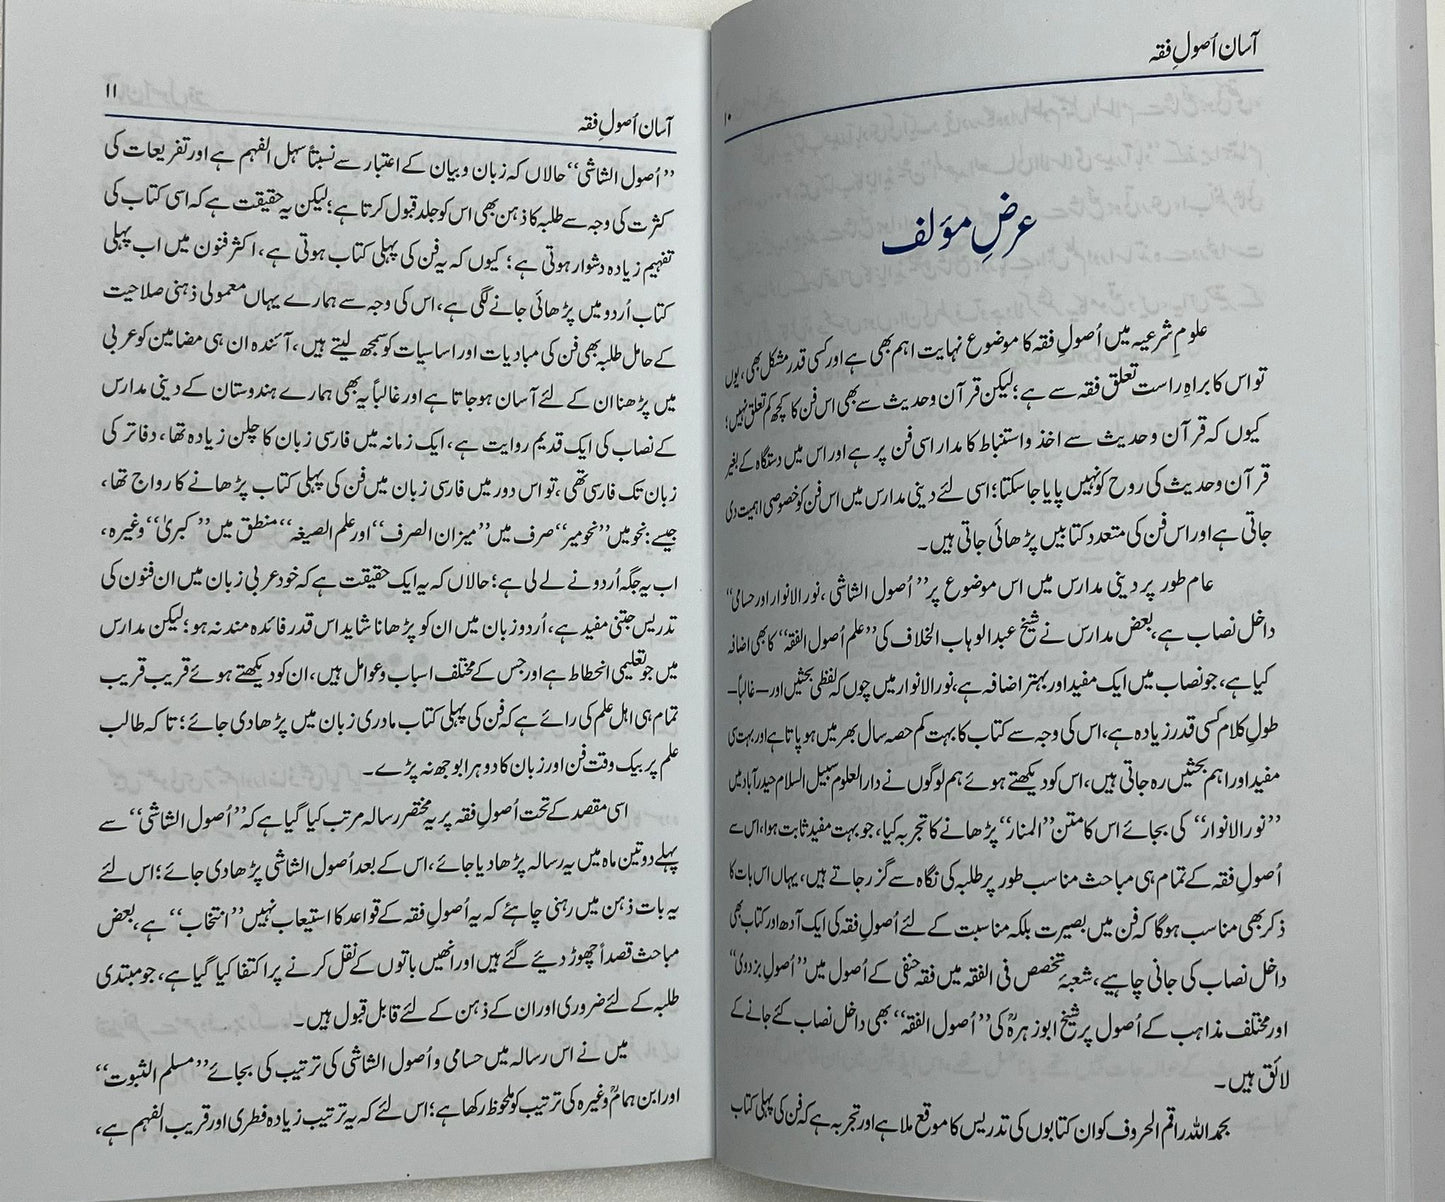 آسان اُصولِ فقہ
۱۰
عرضِ مؤلف
علومِ شرعیہ میں اُصولِ فقہ کا موضوع نہایت اہم بھی ہے اور کسی قدر مشکل بھی، یوں
تو اس کا براہِ راست تعلق فقہ سے ہے؛ لیکن قرآن وحدیث سے بھی اس فن کا کچھ کم تعلق نہیں؛
کیوں کہ قرآن وحدیث سے اخذ واستنباط کا مدار اسی فن پر ہے اور اس میں دستگاہ کے بغیر
قرآن وحدیث کی روح کو نہیں پایا جاسکتا؛ اسی لئے دینی مدارس میں اس فن کو خصوصی اہمیت دی
جاتی ہے اور اس فن کی متعدد کتابیں پڑھائی جاتی ہیں۔
عام طور پر دینی مدارس میں اس موضوع پر ’’اُصول الشاشی، نور الانوار اور حسامی‘‘
داخل نصاب ہے، بعض مدارس نے شیخ عبدالوہاب الخلاف کی ’’علم اُصول الفقہ‘‘ کا بھی اضافہ
کیا ہے، جو نصاب میں ایک مفید اور بہتر اضافہ ہے، نورالانوار میں چوں کہ لفظی بحثیں اور – غالباً –
طولِ کلام کسی قدر زیادہ ہے، اس کی وجہ سے کتاب کا بہت کم حصہ سال بھر میں ہو پاتا ہے اور بہت سی
مفید اور اہم بحثیں رہ جاتی ہیں، اس کو دیکھتے ہوئے ہم لوگوں نے دارالعلوم سبیل السلام حیدرآباد میں
’’نورالانوار‘‘ کی بجائے اس کا متن ’’المنار‘‘ پڑھانے کا تجربہ کیا، جو بہت مفید ثابت ہوا، اس سے
اُصولِ فقہ کے تمام ہی مباحث مناسب طور پر طلبہ کی نگاہ سے گزر جاتے ہیں، یہاں اس بات کا
ذکر بھی مناسب ہوگا کہ فن میں بصیرت بلکہ مناسبت کے لئے اُصولِ فقہ کی ایک آدھ اور کتاب بھی
داخل نصاب کی جانی چاہیے، شعبۂ تخصص فی الفقہ میں فقہ حنفی کے اُصول میں ’’اُصولِ بزدوی‘‘
اور مختلف مذاہب کے اُصول پر شیخ ابوزہرہؒ کی ’’اُصول الفقہ‘‘ بھی داخل نصاب کئے جانے کے
لائق ہیں۔
بحمداللہ راقم الحروف کو ان کتابوں کی تدریس کا موقع ملا ہے اور تجربہ ہے کہ فن کی پہلی کتاب
۱۱
آسان اُصولِ فقہ
’’اُصول الشاشی‘‘ حالاں کہ زبان وبیان کے اعتبار سے نسبتاً سہل الفہم ہے اور تفریعات کی
کثرت کی وجہ سے طلبہ کا ذہن بھی اس کو جلد قبول کرتا ہے؛ لیکن یہ حقیقت ہے کہ اسی کتاب کی
تفہیم زیادہ دشوار ہوتی ہے؛ کیوں کہ یہ فن کی پہلی کتاب ہوتی ہے، اکثر فنون میں اب پہلی
کتاب اُردو میں پڑھائی جانے لگی ہے، اس کی وجہ سے ہمارے یہاں معمولی ذہنی صلاحیت
کے حامل طلبہ بھی فن کی مبادیات اور اساسیات کو سمجھ لیتے ہیں، آئندہ ان ہی مضامین کو عربی
میں پڑھنا ان کے لئے آسان ہوجاتا ہے اور غالباً یہ بھی ہمارے ہندوستان کے دینی مدارس
کے نصاب کی ایک قدیم روایت ہے، ایک زمانہ میں فارسی زبان کا چلن زیادہ تھا، دفاتر کی
زبان تک فارسی تھی، تو اس دور میں فارسی زبان میں فن کی پہلی کتاب پڑھانے کا رواج تھا،
جیسے: نحو میں ’’نحو میر‘‘ صرف میں ’’میزان الصرف‘‘ اور علم الصیغہ‘‘ منطق میں ’’کبریٰ‘‘ وغیرہ،
اب یہ جگہ اُردو نے لے لی ہے؛ حالاں کہ یہ ایک حقیقت ہے کہ خود عربی زبان میں ان فنون کی
تدریس جتنی مفید ہے، اُردو زبان میں ان کو پڑھانا شاید اس قدر فائدہ مند نہ ہو؛ لیکن مدارس
میں جو تعلیمی انحطاط ہے اور جس کے مختلف اسباب وعوامل ہیں، ان کو دیکھتے ہوئے قریب قریب
تمام ہی اہل علم کی رائے ہے کہ فن کی پہلی کتاب مادری زبان میں پڑھادی جائے؛ تاکہ طالب
علم پر بیک وقت فن اور زبان کا دوہرا بوجھ نہ پڑے۔
اسی مقصد کے تحت اُصولِ فقہ پر یہ مختصر رسالہ مرتب کیا گیا ہے کہ ’’اُصول الشاشی‘‘ سے
پہلے دو تین ماہ میں یہ رسالہ پڑھا دیا جائے، اس کے بعد اُصول الشاشی پڑھادی جائے؛ اس لئے
یہ بات ذہن میں رہنی چاہئے کہ یہ اُصولِ فقہ کے قواعد کا استیعاب نہیں ’’انتخاب‘‘ ہے، بعض
مباحث قصداً چھوڑ دیئے گئے ہیں اور انھیں باتوں کے نقل کرنے پر اکتفا کیا گیا ہے، جو مبتدی
طلبہ کے لئے ضروری اور ان کے ذہن کے لئے قابل قبول ہیں۔
میں نے اس رسالہ میں حسامی و اُصول الشاشی کی ترتیب کی بجائے ’’مسلم الثبوت‘‘
اور ابن ہمامؒ وغیرہ کی ترتیب کو ملحوظ رکھا ہے؛ اس لئے کہ یہ ترتیب زیادہ فطری اور قریب الفہم ہے،